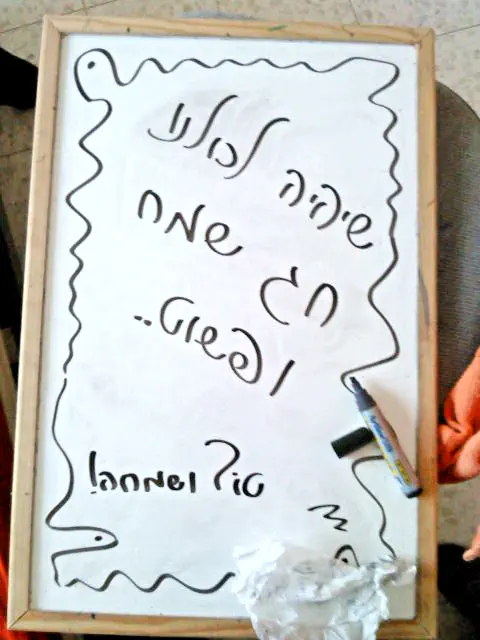 שיהיה לכולנו
חג שמח
ופשוט..
טוב ושמחה!